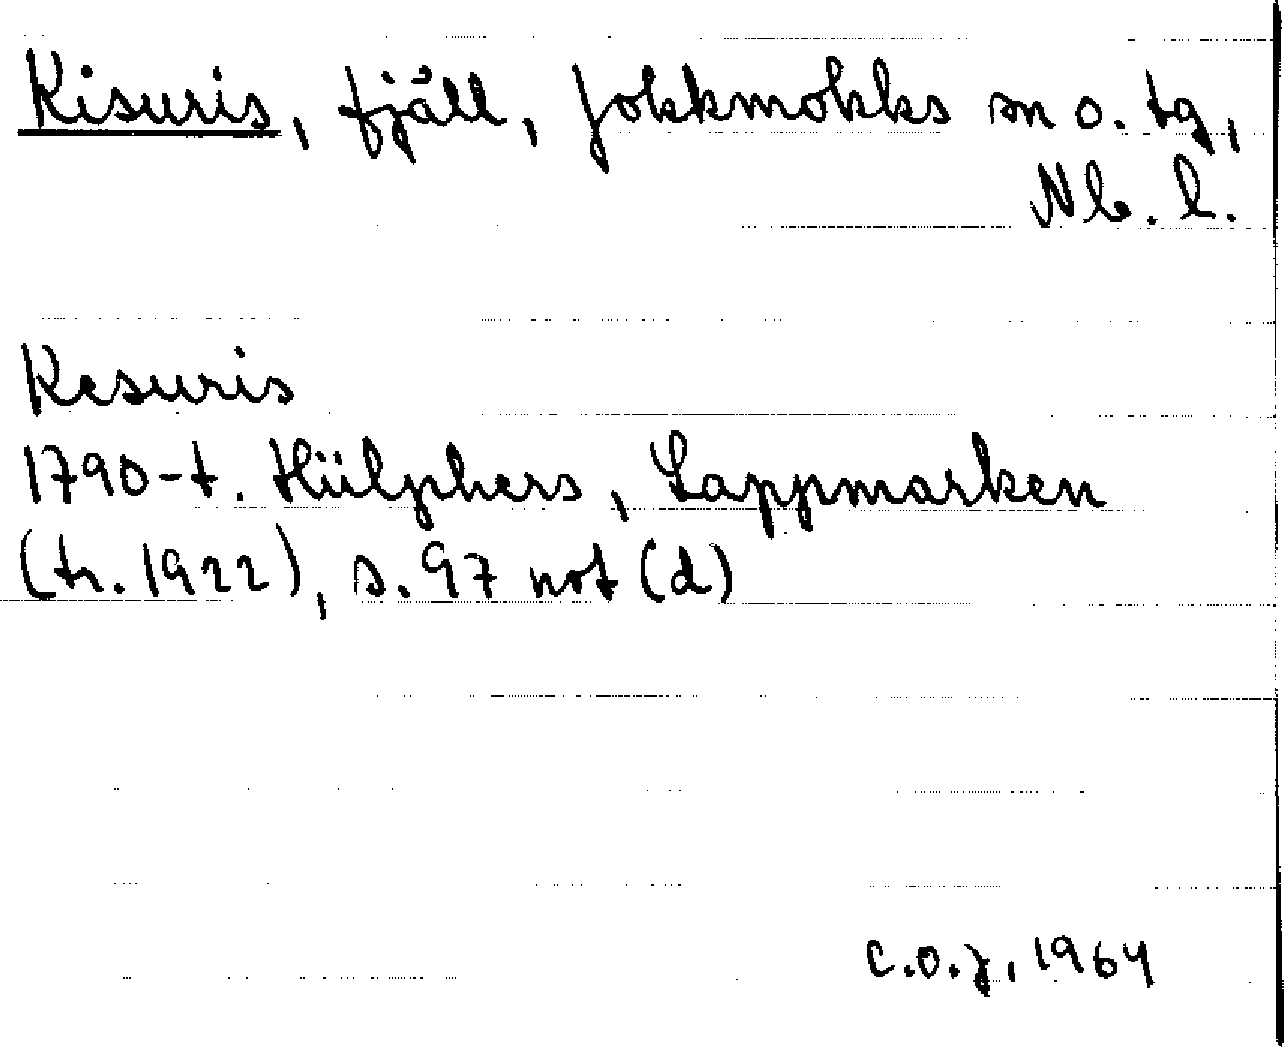 Kisuris, fjäll, Jokkmokks sn o. tg,
Nb. l.
Kesuris
1790-t. Hülphers, Lappmarken
(tr. 1922), s. 97 not (d)
C.O.J. 1964